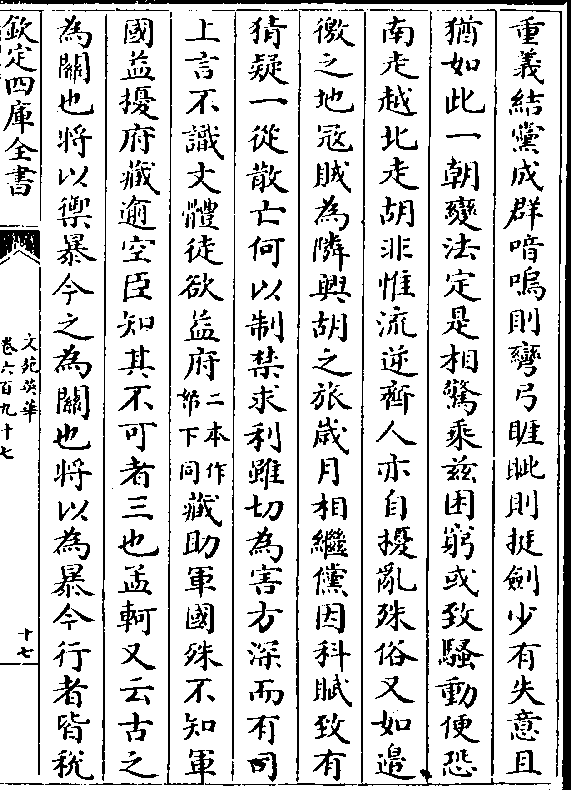 重義結黨成群喑嗚則彎弓睚眦則挺劍少有失意且
猶如此一朝變法定是相驚乘兹困窮或致騷動便恐
南走越北走胡非惟流逆齊人亦自擾亂殊俗又如邉
徼之地冦賊為隣興胡之旅歳月相繼儻因科賦致有
猜疑一從散亡何以制禁求利雖切為害方深而有司
上言不識大體徒欲益府二本作帑下同藏助軍國殊不知軍
國益擾府藏逾空臣知其不可者三也孟軻又云古之
為關也將以禦暴今之為關也將以為暴今行者皆稅
欽定四庫全書
文苑英華
卷六百九十七
十七